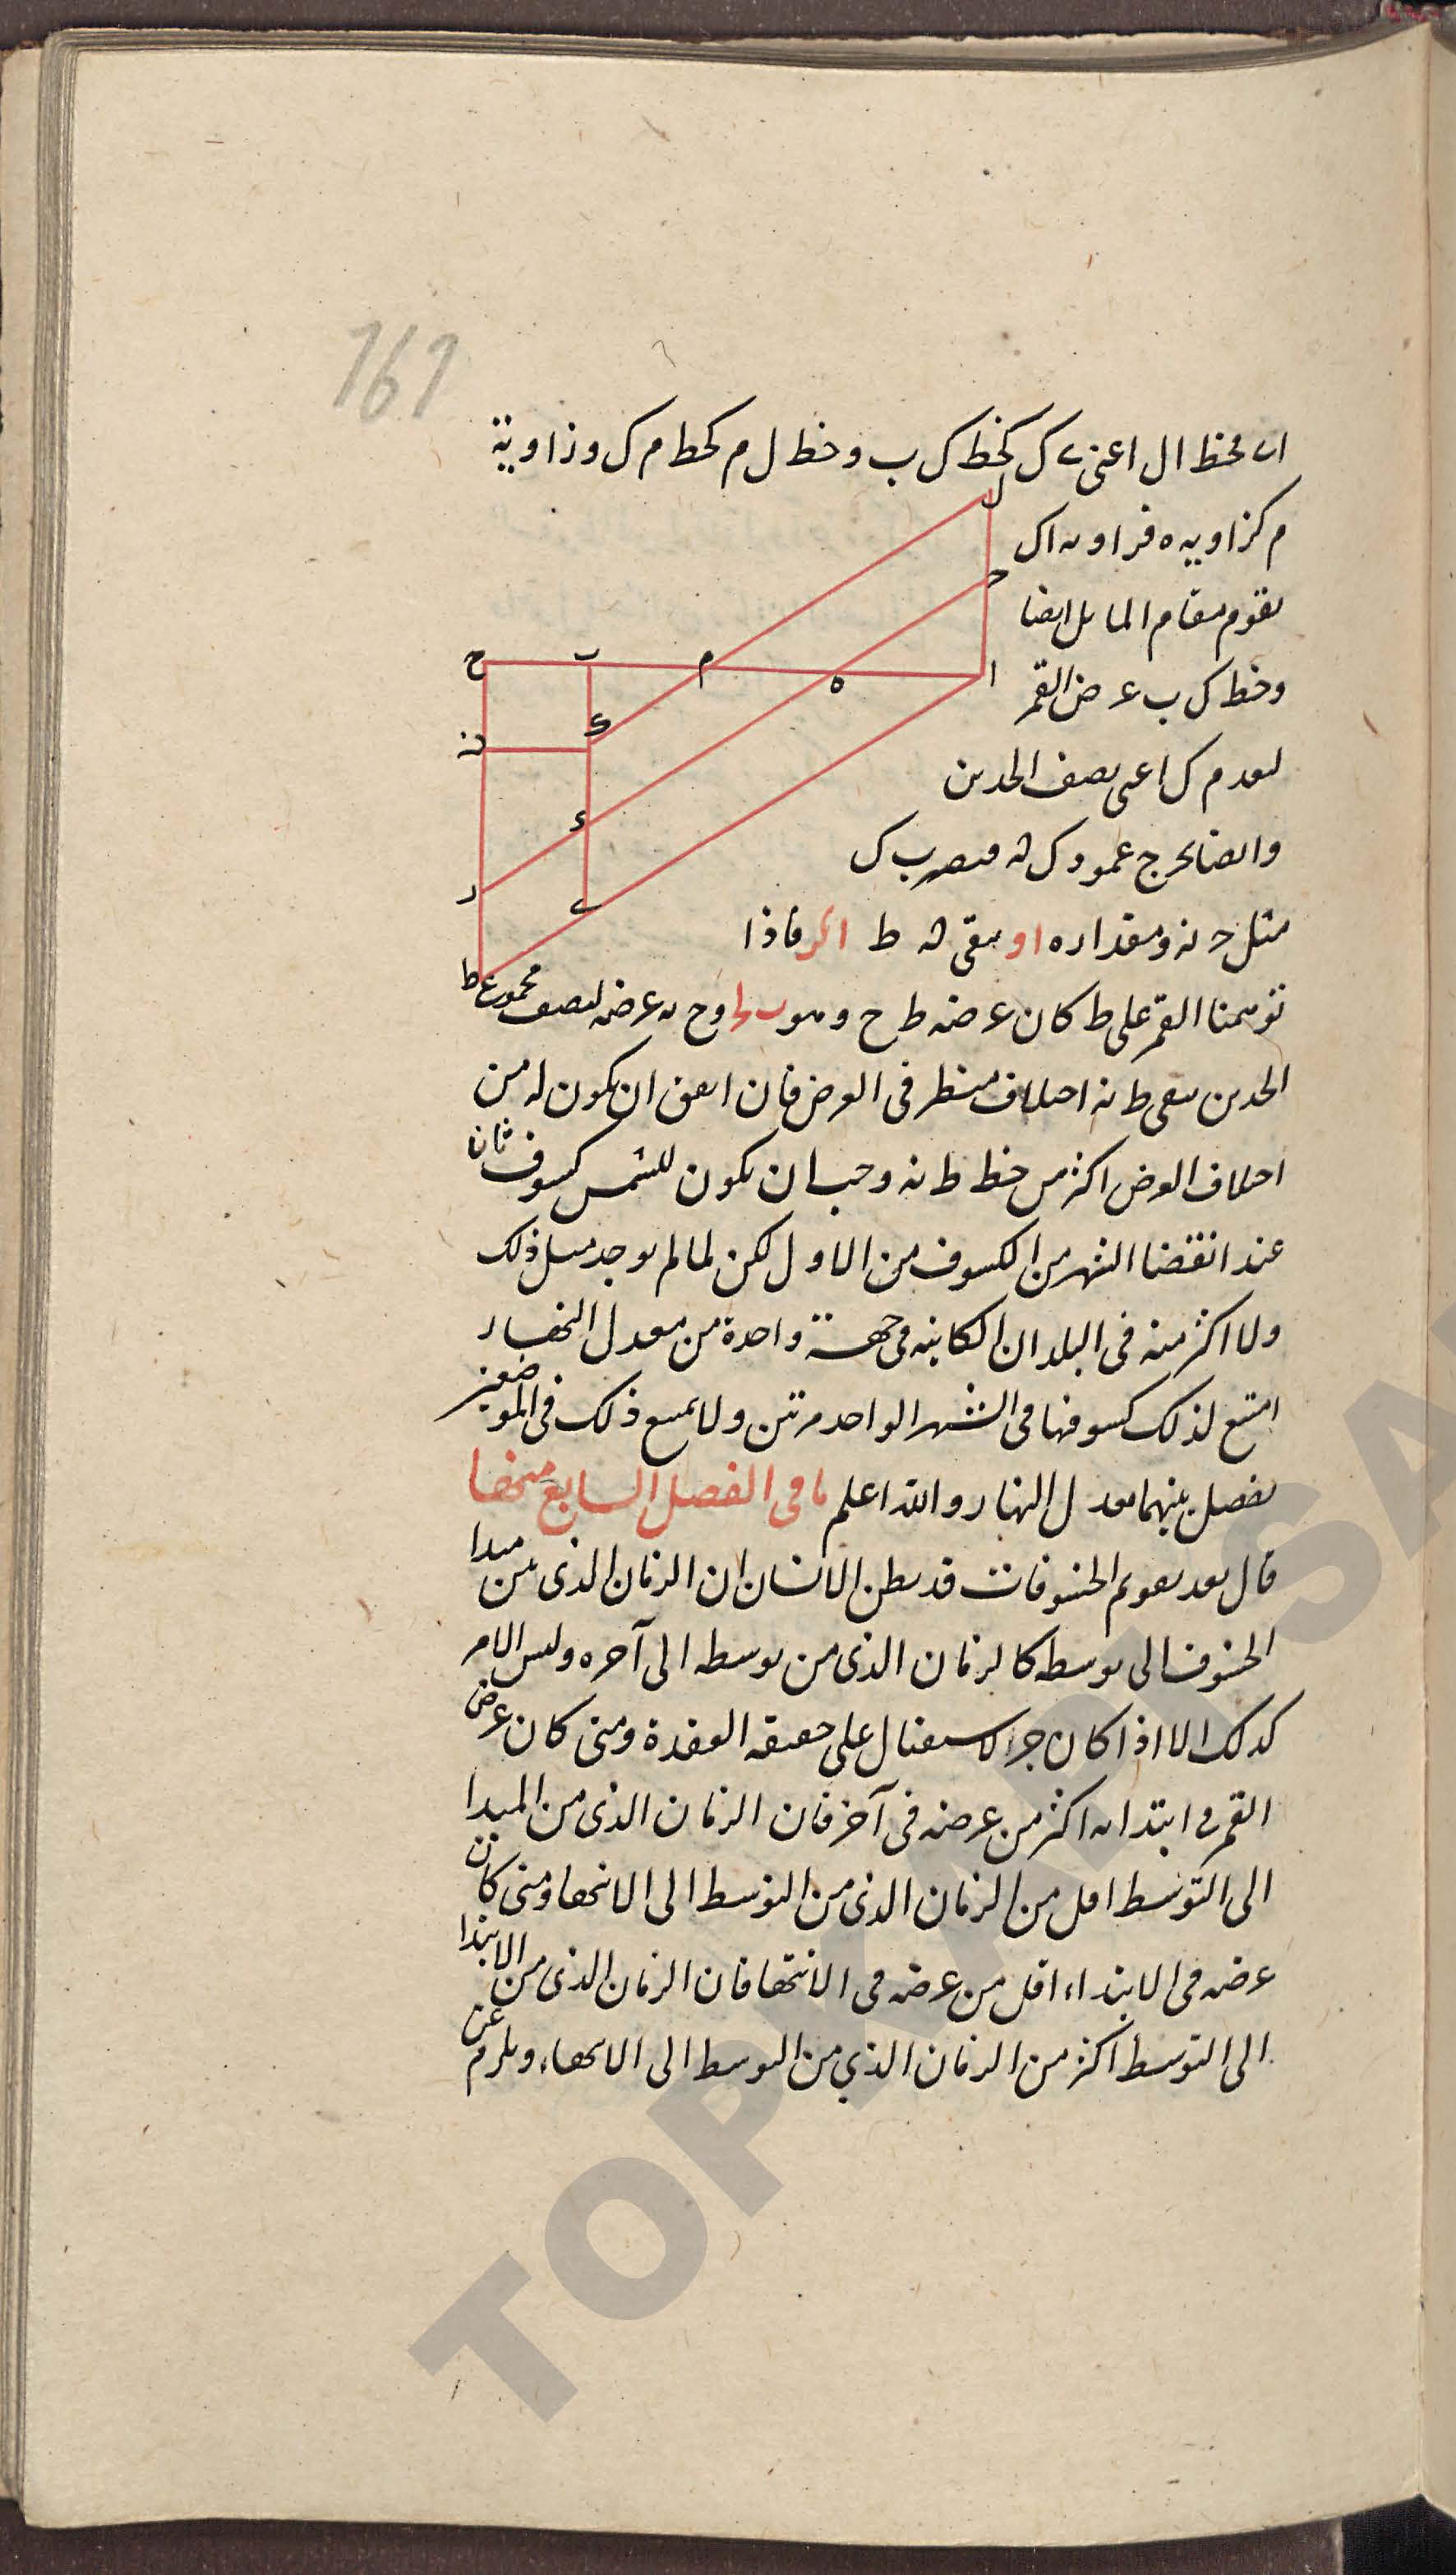 161
اى فخط ال اعنى ى ك كخط ك ب وخط ل م كخط م ك وزاوية
م كزاويه ه فزاويه اك
يقوم مقام المايل ايضا
وخط ك ب عرض القمر
لبعد م ك اعنى نصف الحدين
وايضا نخرج عمود ك نه فيصير ب ك
مثل ح نه ومقداره او يبقى نه ط فاذا
توهمنا القمر على ط كان عرضه ط ح وهو وح نه عرضه لنصف مجموع
الحدين يبقى ط نه اختلاف منظر فى العرض فان اتفق ان يكون له من
اختلاف العرض اكثر من خط ط نه وجب ان يكون للشمس كسوف ثان
عند انقضا الشهر من الكسوف من الاول لكن لما لم يوجد مثل ذلك
ولا اكثر منه فى البلدان الكاينه فى جهة واحدة من معدل النهار
امتنع لذلك كسوفها فى الشهر الواحد مرتين ولا يمنع ذلك فى الموضعين
يفصل بينهما معدل النهار والله اعلم ما فى الفصل السابع منها
قال بعد تقويم الخسوفات قد يظن الانسان ان الزمان الذى من مبدا
الخسوف الى توسطه كالزمان الذى من توسطه الى آخره وليس الامر
كذلك الا اذا كان جزء الاستقبال على حقيقه العقدة ومتى كان عرض
القمر فى ابتدائه اكثر من عرضه فى آخر فان الزمان الذى من المبدا
الى التوسط اقل من الزمان الذى من التوسط الى الانتها ومتى كان
عرضه فى الابتداء اقل من عرضه فى الانتها فان الزمان الذى من الابتدا
الى التوسط اكثر من الزمان الذي من التوسط الى الانتهاء ويلزم عن
ل
ح
ا
ه
م
ب
ح
ك
نه
ء
ر
ى
ط
TOPKAPI SA